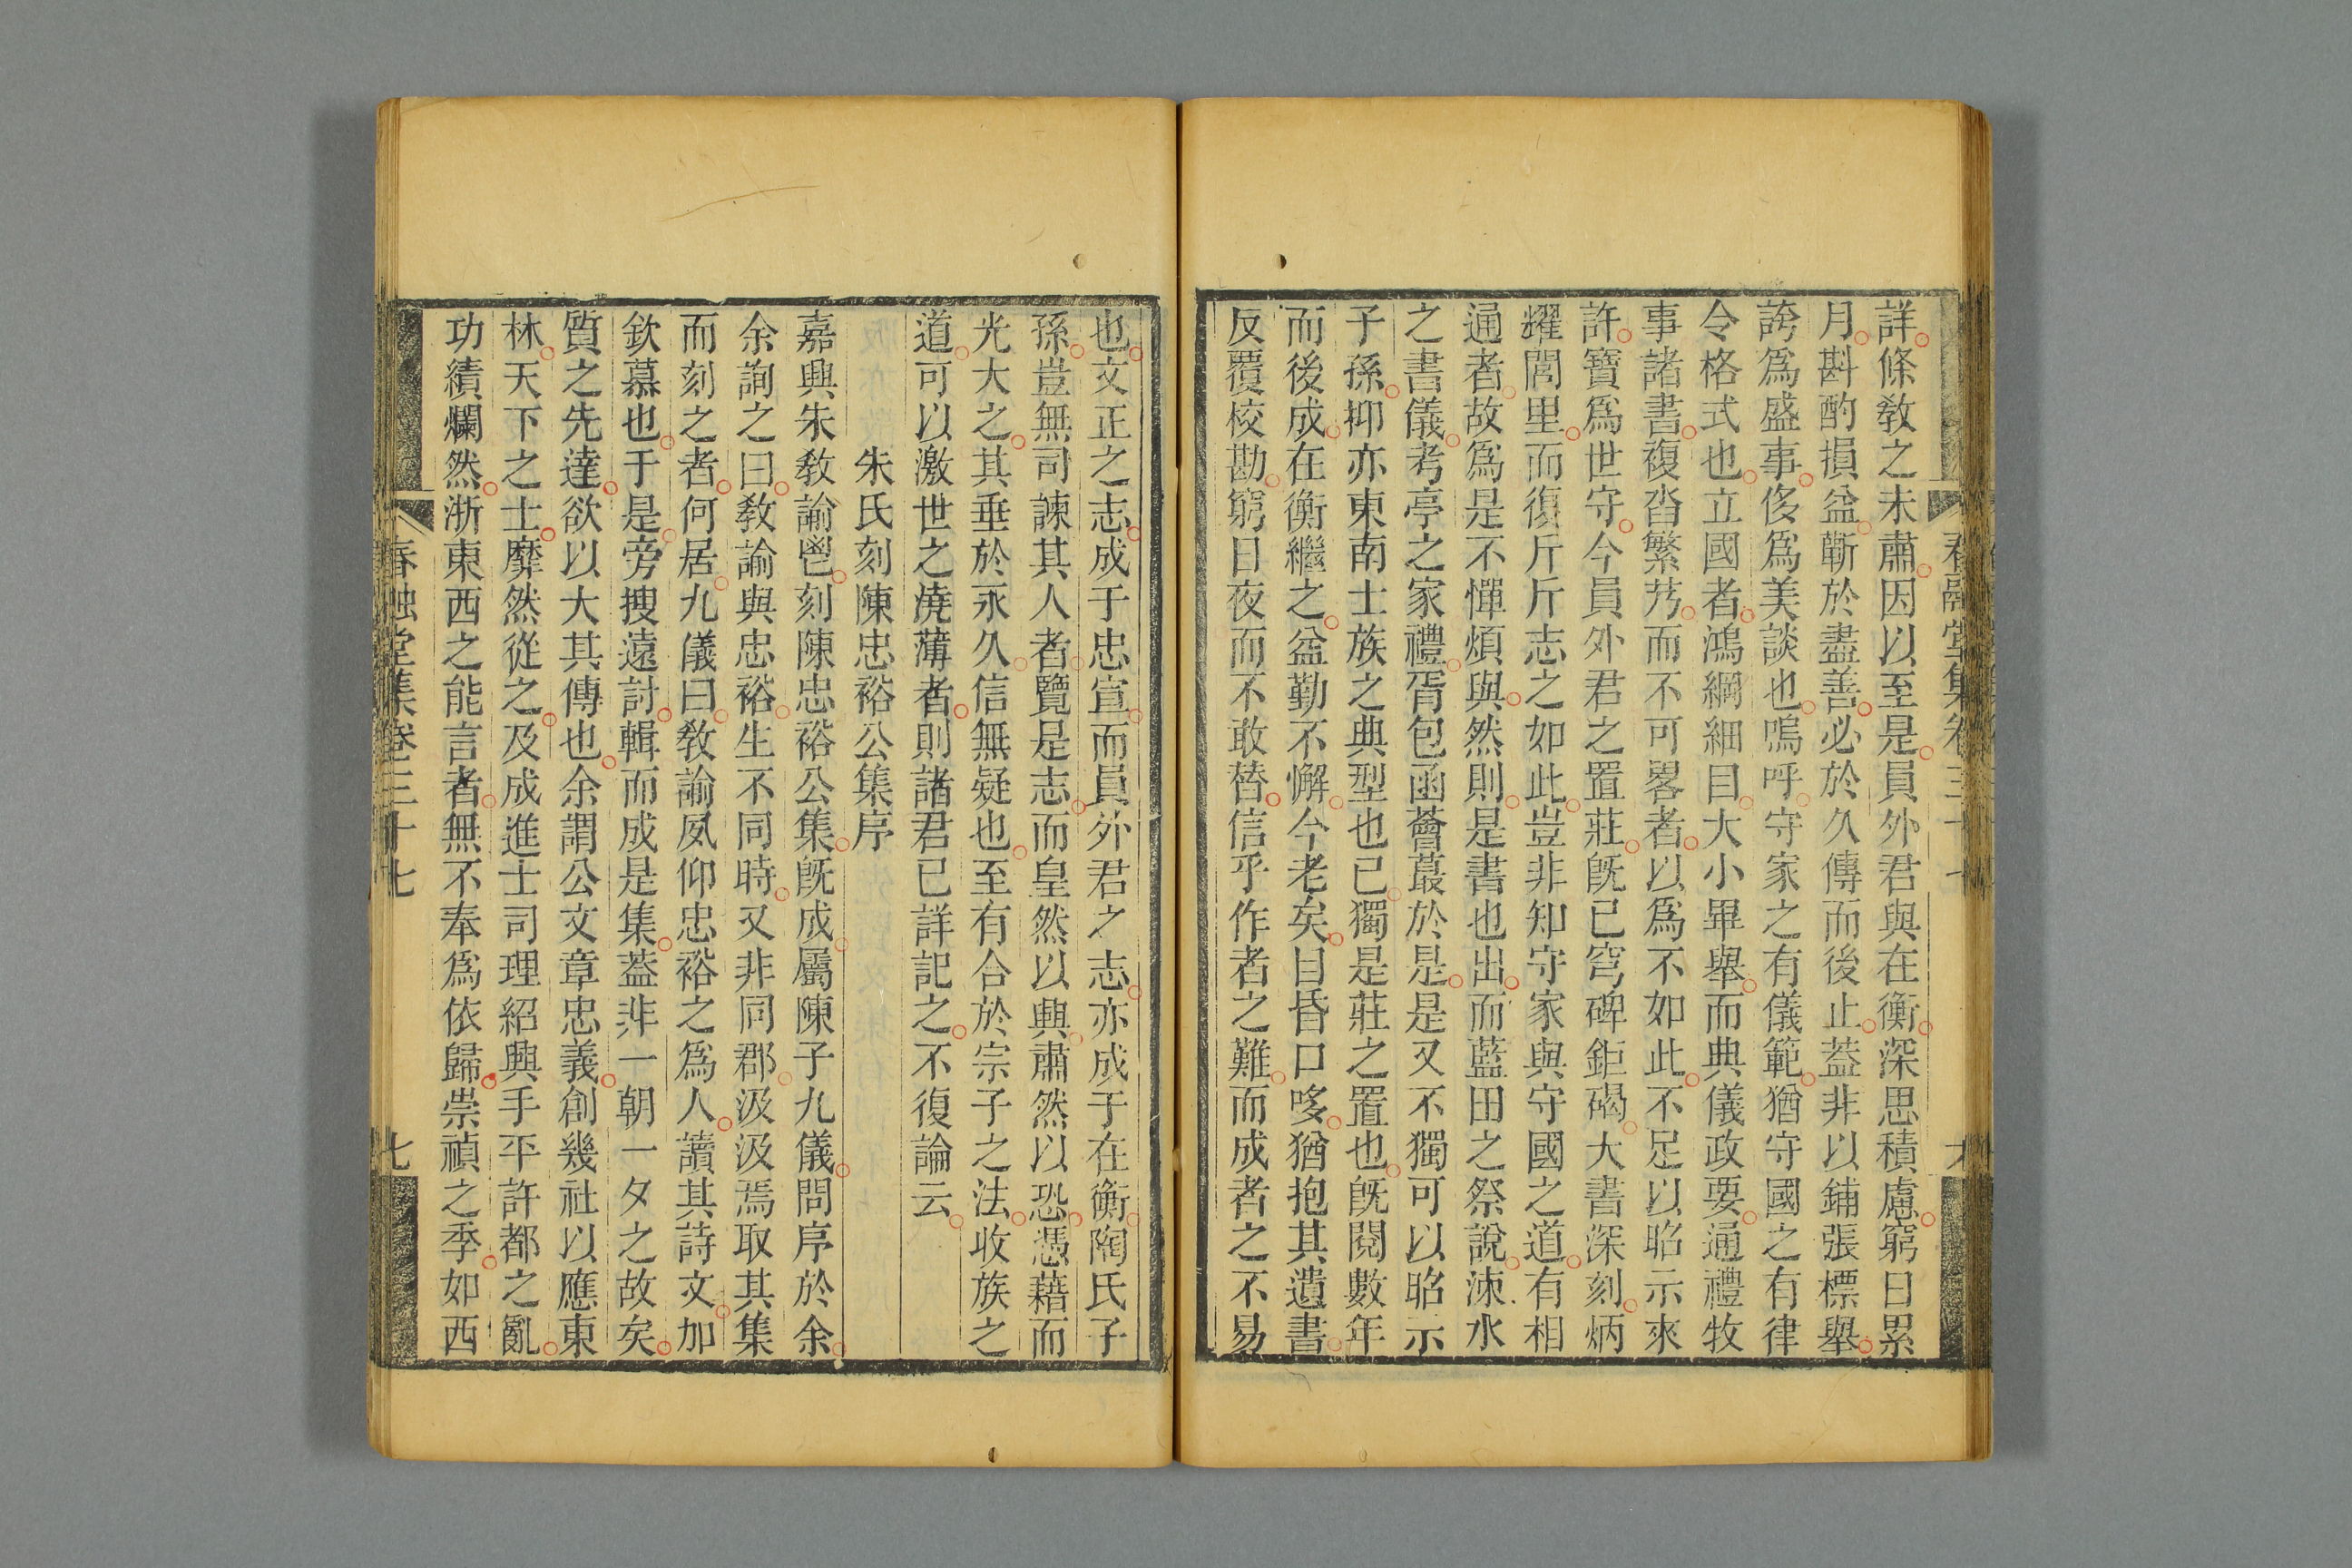 詳條敎之未肅因以至是員外君與在衡深思積慮窮日累
月斟酌損益蘄於盡善必於久傳而後止葢非以鋪張標舉
誇爲盛事侈爲美談也嗚呼守家之有儀範猶守國之有律
令格式也立國者鴻綱細目大小畢舉而典儀政要通禮牧
事諸書複沓繁艿而不可畧者以爲不如此不足以昭示來
許寶爲世守今員外君之置莊旣已穹碑鉅碣大書深刻炳
燿閭里而復斤斤志之如此豈非知守家與守國之道有相
通者故爲是不憚煩與然則是書也出而藍田之祭說涑水
之書儀考亭之家禮胥包函薈蕞於是是又不獨可以昭示
子孫抑亦東南士族之典型也已獨是莊之置也旣閱數年
而後成在衡繼之益勤不懈今老矣目昏口哆猶抱其遺書
反覆校勘窮日夜而不敢替信乎作者之難而成者之不易
也文正之志成于忠宣而員外君之志亦成于在衡陶氏子
孫豈無司諫其人者覽是志而皇然以興肅然以恐憑藉而
光大之其垂於永久信無疑也至有合於宗子之法收族之
道可以激世之澆薄者則諸君已詳記之不復論云
朱氏刻陳忠裕公集序
嘉興朱敎諭鬯刻陳忠裕公集旣成屬陳子九儀問序於余
余詢之曰敎諭與忠裕生不同時又非同郡汲汲焉取其集
而刻之者何居九儀曰敎諭夙仰忠裕之爲人讀其詩文加
欽慕也于是旁搜遠討輯而成是集葢非一朝一夕之故矣
質之先達欲以大其傳也余謂公文章忠義創幾社以應東
林天下之士靡然從之及成進士司理紹興手平許都之亂
功績爛然浙東西之能言者無不奉爲依歸祟禎之季如西
春融堂集卷三十七
七